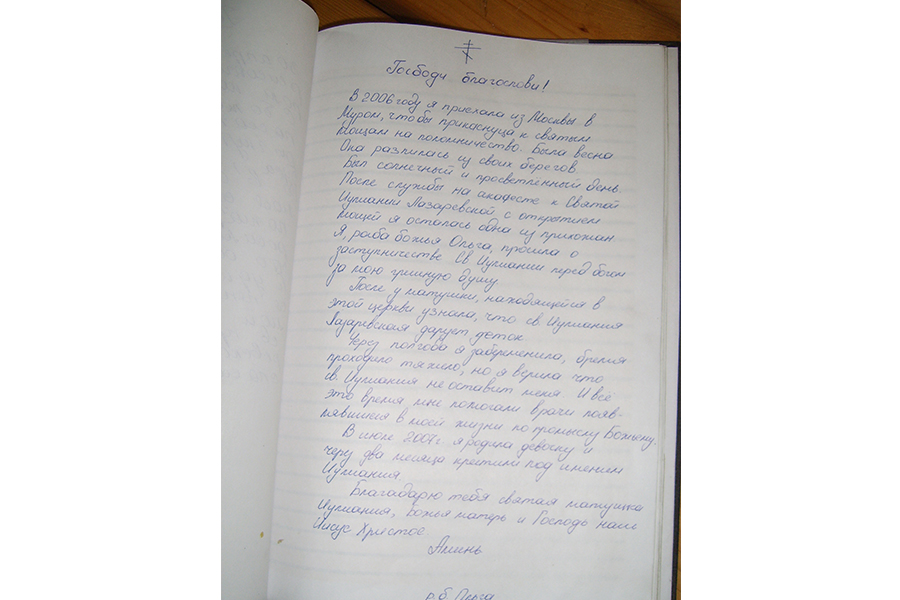 Господи благослови!
В 2006 году я приехала из Москвы в
Муром, чтобы прикоснуца к святым
мощам на поломничество. Была весна
Ока разлилась из своих берегов.
Был солнечный и просветленный день.
После службы на акафесте к Святой
Иулиании Лазаревской с открытием
мощей я осталась одна из прихожан.
Я, раба божья Ольга, просила о
заступничестве Св Иулиании перед богом
за мою грешную душу
После у матушки, находящейся в
этой церкви узнала, что св Иулиания
Лазаревская дарует деток
Через полгода я забеременила, бремя
проходило тяжило, но я верила что
св. Иулиания не оставит меня. И все
это время мне помогали врачи появ-
лявшиеся в моей жизни по промыслу Божьему.
В июле 2007 г. я родила девочку и
через два месяца крестили под именем
Иулиания.
Благодарю тебя святая матушка
Иулиания, Божья матерь и Господь наш
Иисус Христос.
Аминь
р.б. Ольга